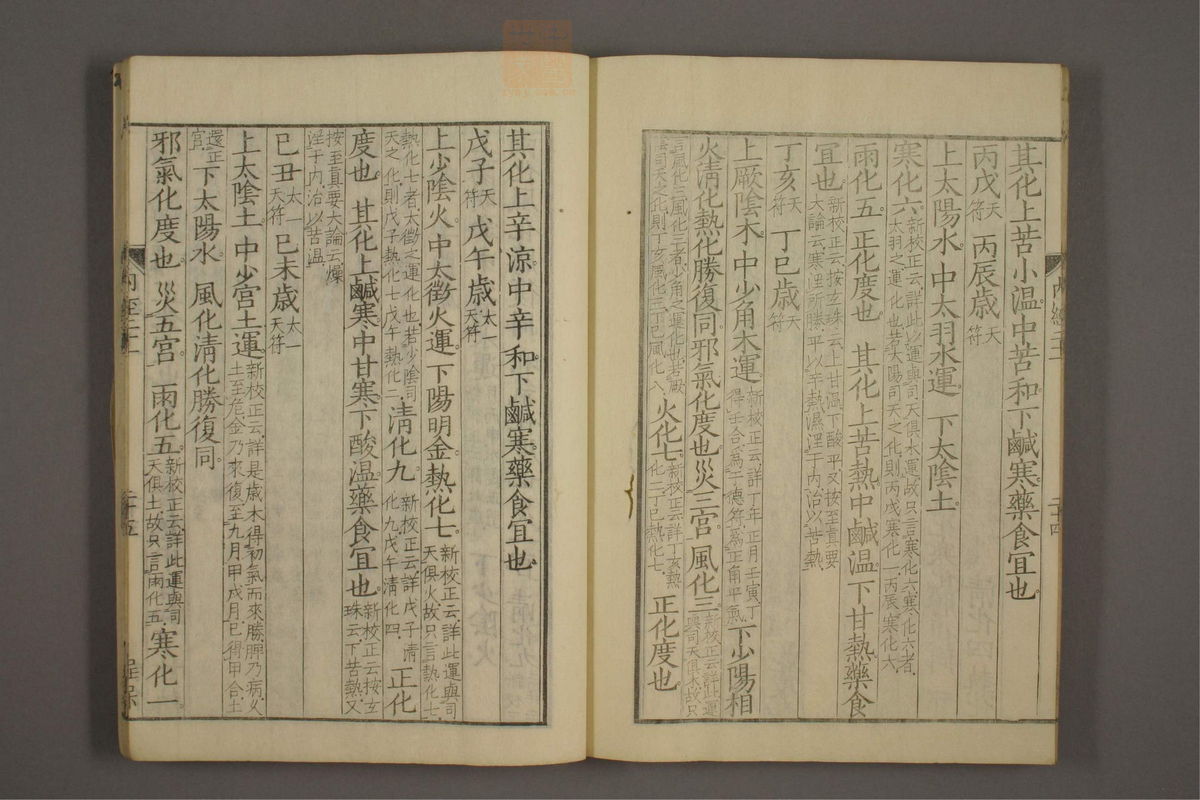 其化上苦小温中苦和下鹹寒藥食宜也
丙戊歲天符 丙辰歲天符
上太陽水中太羽水運下太陰土
寒化六新校正云詳此以運與司天俱水運故只言寒化六寒化六者太羽之運化也若太陽司天之化則丙戌寒化一丙辰寒化六
雨化五正化度也 其化上苦熱中鹹温下甘熱藥食
宜也新校正云按玄珠云上甘温下酸平又按至真要大論云寒淫所勝平以辛熱濕淫于内治以苦熱
丁亥天符 丁巳歲天符
上厥陰木中少角木運新校正云詳丁年正月壬寅丁得壬合爲干德符爲正角平氣下少陽相
火清化熱化勝復同邪氣化度也災三宮風化三新校正云詳此運與司天俱木故只
言風化三風化三者少角之運化也若厥陰司天之化則丁亥風化三丁巳風化八火化七新校正云詳丁亥熱化二丁巳熱化七正化度也
内經二十一
二十四
其化上辛涼中辛和下鹹寒藥食宜也
戊子天符 戊午歲太一天符
上少陰火中太徵火運下陽明金熱化七新校正云詳此運與司天俱火故只言熱化七
熱化七者太徵之運化也若少陰司天之化則戊子熱化七戊午熱化二清化九新校正云詳戊子清化九戊午清化四正化
度也 其化上鹹寒中甘寒下酸温藥食宜也新校正云按玄珠云下苦熱又
按至真要大論云燥淫于内治以苦温
己丑太一天符 己未歲太一天符
上太陰土中少宮土運新校正云詳是歲木得初氣而來勝脾乃病久土至危金乃來復至九月甲戌月已得甲合土
還正宮下太陽水 風化清化勝復同
邪氣化度也災五宮 雨化五新校正云詳此運與司天俱土故只言雨化五寒化一
内經二十一
二十五